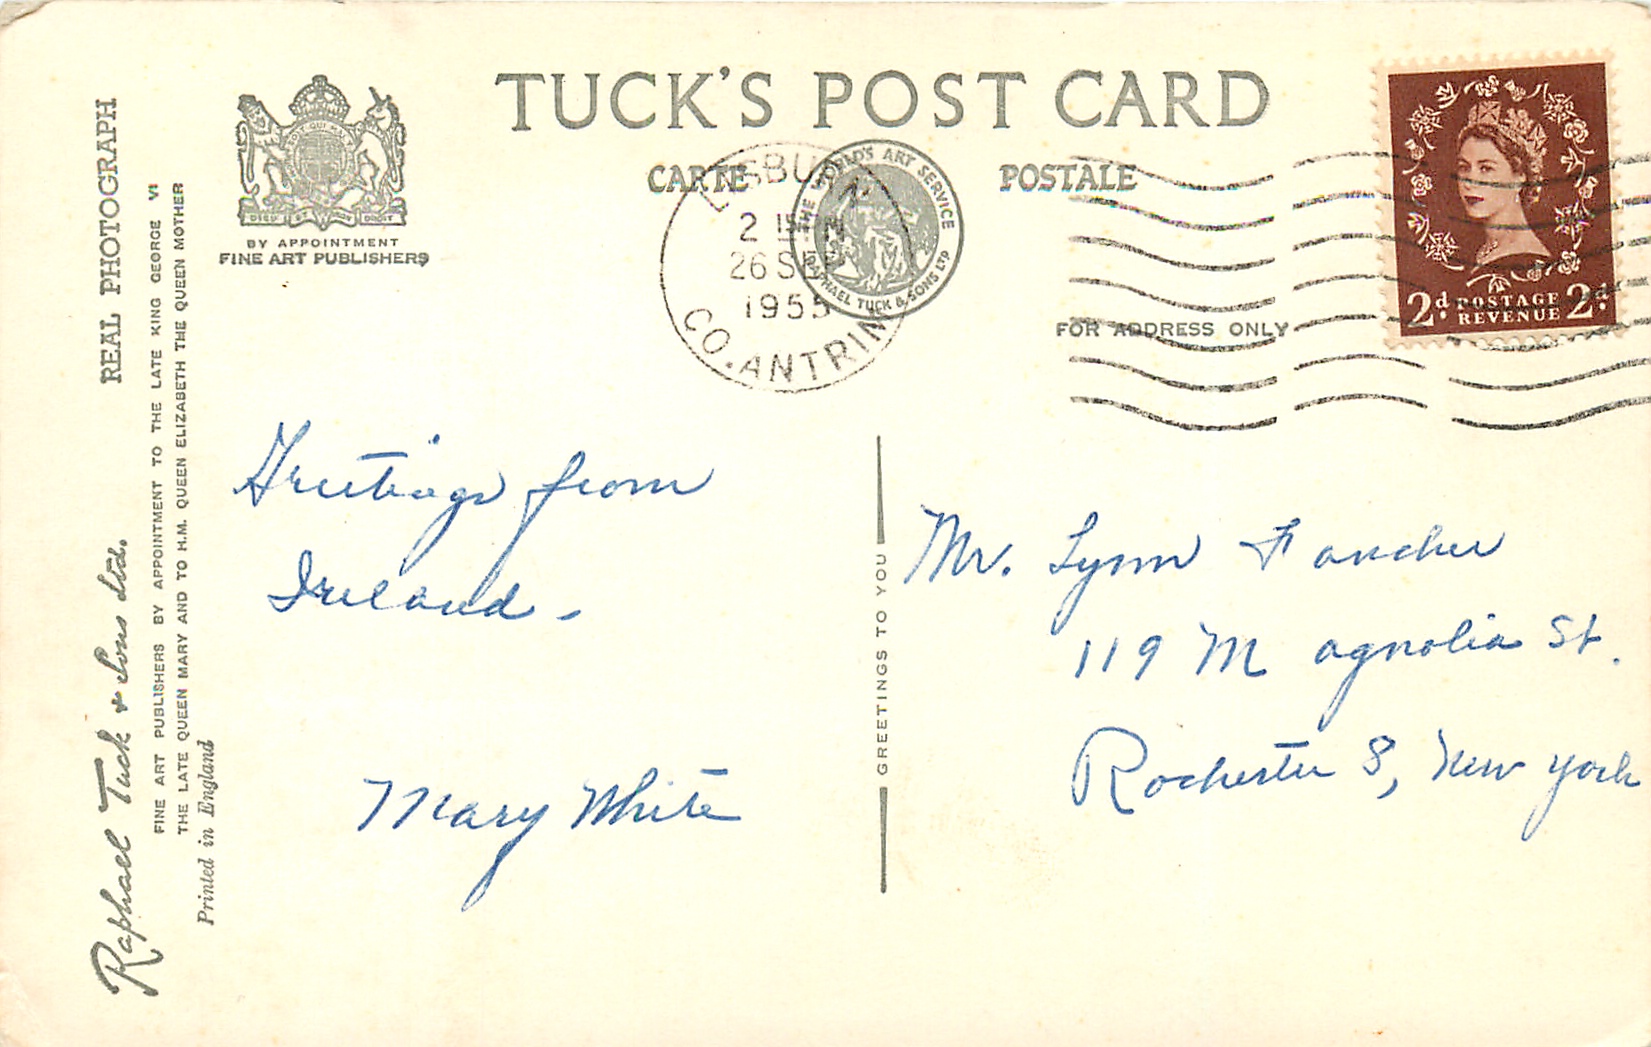 TUCK'S POST CARD
CARTE POSTALE
BY APPOINTMENT
FINE ART PUBLISHERS
LISBURN
2 15
26 SEP
1955
CO. ANTRIM
THE WORLD'S ART SERVICE
RAPHAEL TUCK & SONS LTD
2d. POSTAGE REVENUE 2d.
FOR ADDRESS ONLY
REAL PHOTOGRAPH
Raphael Tuck & Sons Ltd.
FINE ART PUBLISHERS BY APPOINTMENT TO THE LATE KING GEORGE VI
THE LATE QUEEN MARY AND TO H.M. QUEEN ELIZABETH THE QUEEN MOTHER
Printed in England
Greetings from
Ireland.
Mary White
GREETINGS TO YOU
Mr. Lynn Fancher
119 Magnolia St.
Rochester 8, New York